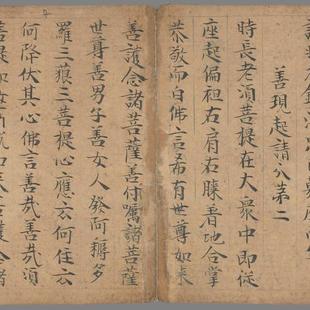 善現起請分第二
時長老須菩提在大衆中即從
座起偏袒右肩右膝着地合掌
恭敬而白佛言希有世尊如來
善護念諸菩薩善付囑諸菩薩
世尊善男子善女人發阿耨多
羅三藐三菩提心應云何住云
何降伏其心佛言善哉善哉須